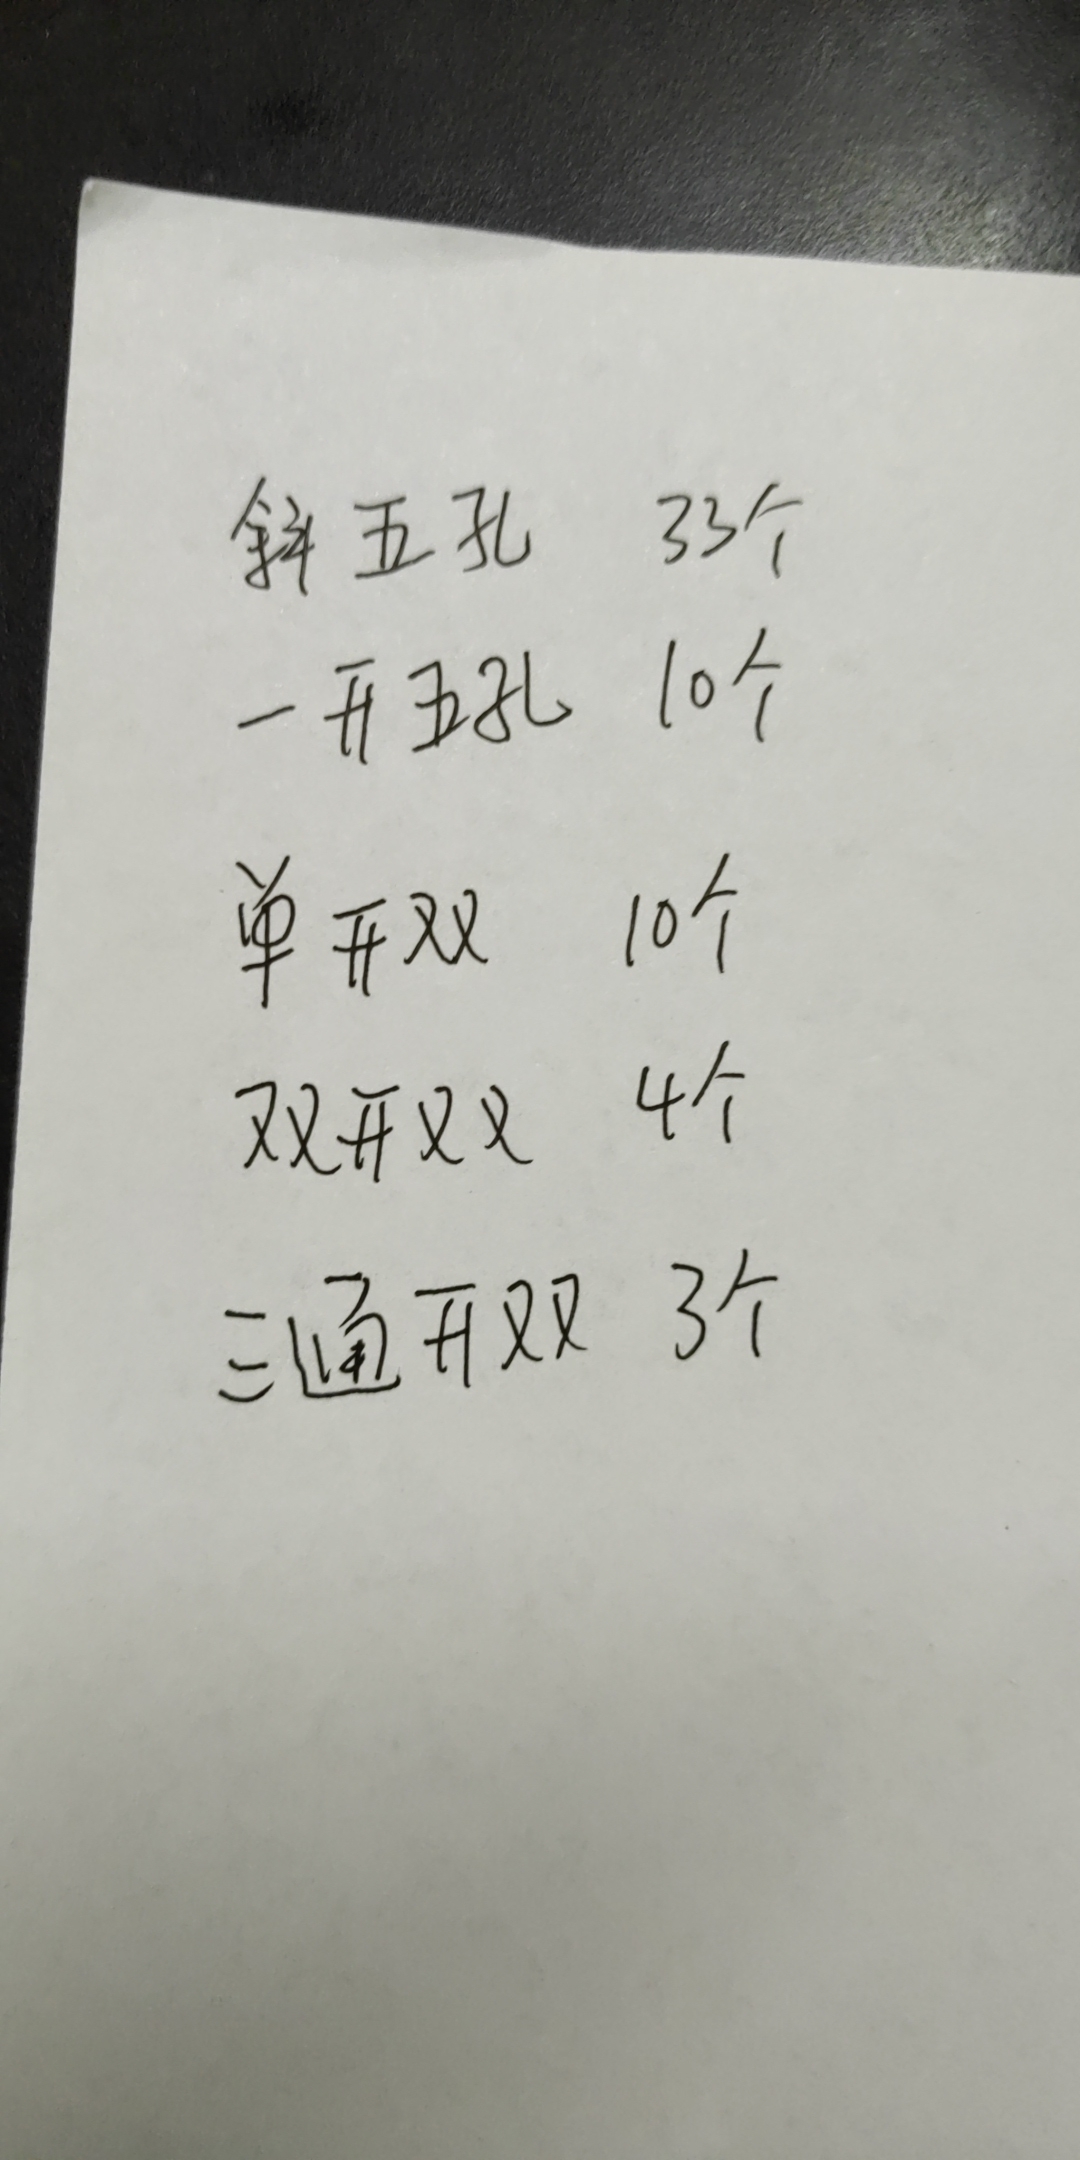 斜五孔 33个
一开五孔 10个
单开双 10个
双开双 4个
三通开双 3个